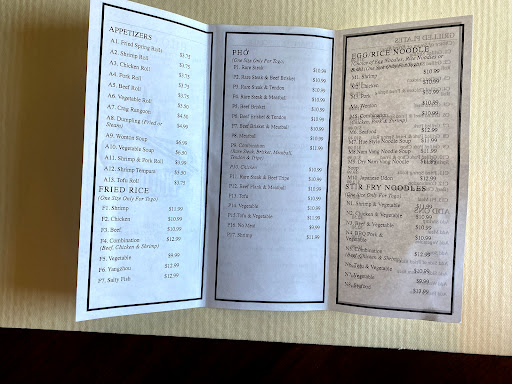 APPETIZERS
A1. Fried Spring Rolls $3.75
A2. Shrimp Roll $3.75
A3. Chicken Roll $3.75
A4. Pork Roll
A5. Beef Roll
A6. Vegetable Roll
A7. Crag Rangoon
A8. Dumpling (Fried or Steam) $4.99
A9. Wonton Soup $6.99
A10. Vegetable Soup $6.50
A11. Shrimp & Pork Roll
A12. Shrimp Tempura
A13. Tofu Roll $3.75
FRIED RICE
(One Size Only For Togo)
F1. Shrimp $11.99
F2. Chicken $10.99
F3. Beef $10.99
F4. Combination $12.99
(Beef, Chicken & Shrimp)
F5. Vegetable $9.99
F6. Yangzhou $12.99
F7. Salty Fish $12.99
PHỞ
(One Size Only For Togo)
P1. Rare Steak $10.99
P2. Rare Steak & Beef Brisket $10.99
P3. Rare Steak & Tendon $10.99
P4. Rare Steak & Meatball $10.99
P5. Beef Brisket $10.99
P6. Beef Brisket & Tendon $10.99
P7. Beef Brisket & Meatball $10.99
P8. Meatball $10.99
P9. Combination $11.99
(Rare Steak, Brisket, Meatball, Tendon & Tripe)
P10. Chicken $10.99
P11. Rare Steak & Beef Tripe $10.99
P12. Rare Steak & Meatball $10.99
P13. Tofu $10.99
P14. Vegetable $10.99
P15. Tofu & Vegetable $11.99
P16. No Meat
P17. Shrimp $11.99
EGG/RICE NOODLE
(Choice of Egg Noodles, Rice Noodles or Both) (One Size Only For Togo)
M1. Shrimp $10.99
M2. Chicken $10.99
M3. Pork $10.99
M4. Wonton $10.99
M5. Combination
M6. Seafood $12.99
M7. Hue Style Noodle Soup $11.99
M8. Nam Vang Noodle Soup
M9. Dry Nam Vang Noodle $11.99
M10. Japanese Udon $12.99
STIR FRY NOODLES
(One Size Only For Togo)
N1. Shrimp & Vegetable $11.99
N2. Chicken & Vegetable $10.99
N3. Beef & Vegetable $10.99
N4. BBQ Pork & Vegetable $10.99
N5. Combination $12.99
(Beef, Chicken & Shrimp)
N6. Tofu & Vegetable $10.99
N7. Vegetable $9.99
N8. Seafood $12.99